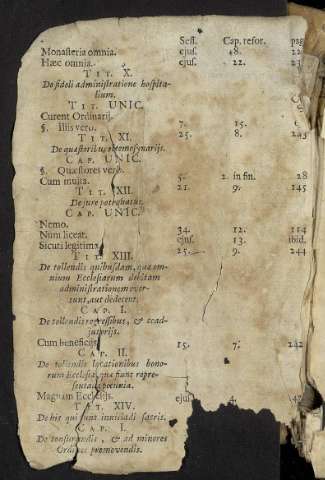 Sess. Cap. refor. pag
Monasteria omnia. ejus. 48. 22
Hæc omnia. ejus. 22. 23
TIT. X.
De fideli administratione hospita-
lium.
TIT. UNIC.
Curent Ordinarij. 7. 15.
§. Illis vero. 25. 8. 243
TIT. XI.
De quæstoribus eleemosynarijs.
CAP. UNIC.
§. Quæstores vero. 5. 2. in fin. 28
Cum multa. 21. 9. 145
TIT. XII.
De jure patronatus.
CAP. UNIC.
Nemo. 34. 12. 114
Num liceat. ejus. 13. ibid.
Sicuti legitima. 25. 9. 244
TIT. XIII.
De tollendis quibusdam, quæ om-
nium Ecclesiarum debitam
administrationem ever-
tunt, aut dedecent.
CAP. I.
De tollendis regressibus, & coad-
jutorijs.
Cum beneficijs. 15. 7. 242
CAP. II.
De tollendis locationibus bono-
rum Ecclesiæ, quæ fiunt repræ-
sentata pecunia.
Magnam Ecclesijs. ejus 4.
TIT. XIV.
De his qui sunt initiandi sacris.
CAP. I.
De tonsurandis, & ad minores
Ordines promovendis.